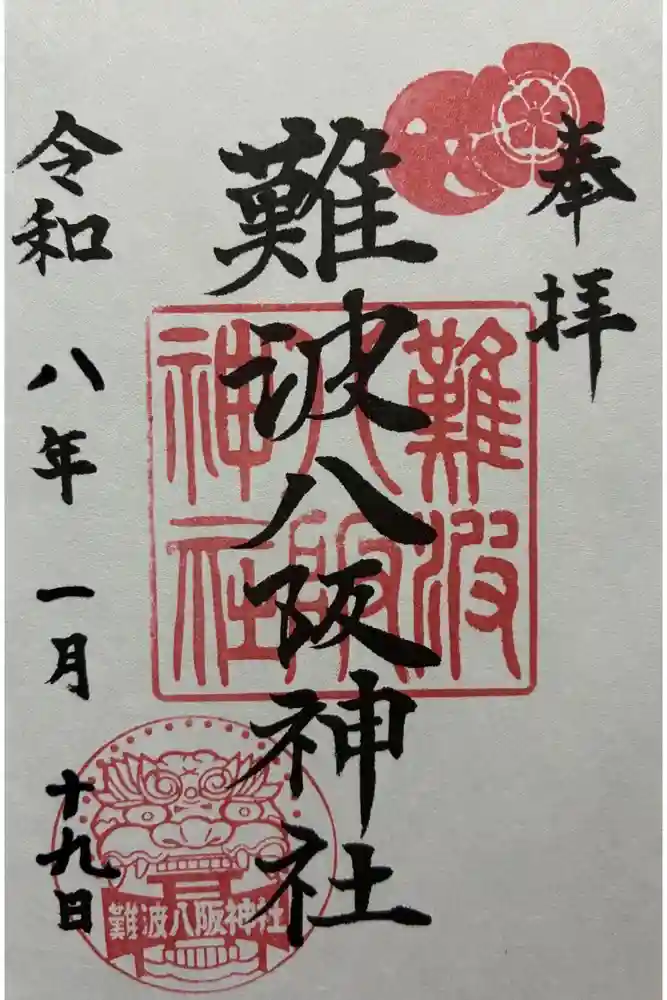 奉拝
難波八阪神社
令和八年一月十九日
難波
八阪
神社
難波八阪神社